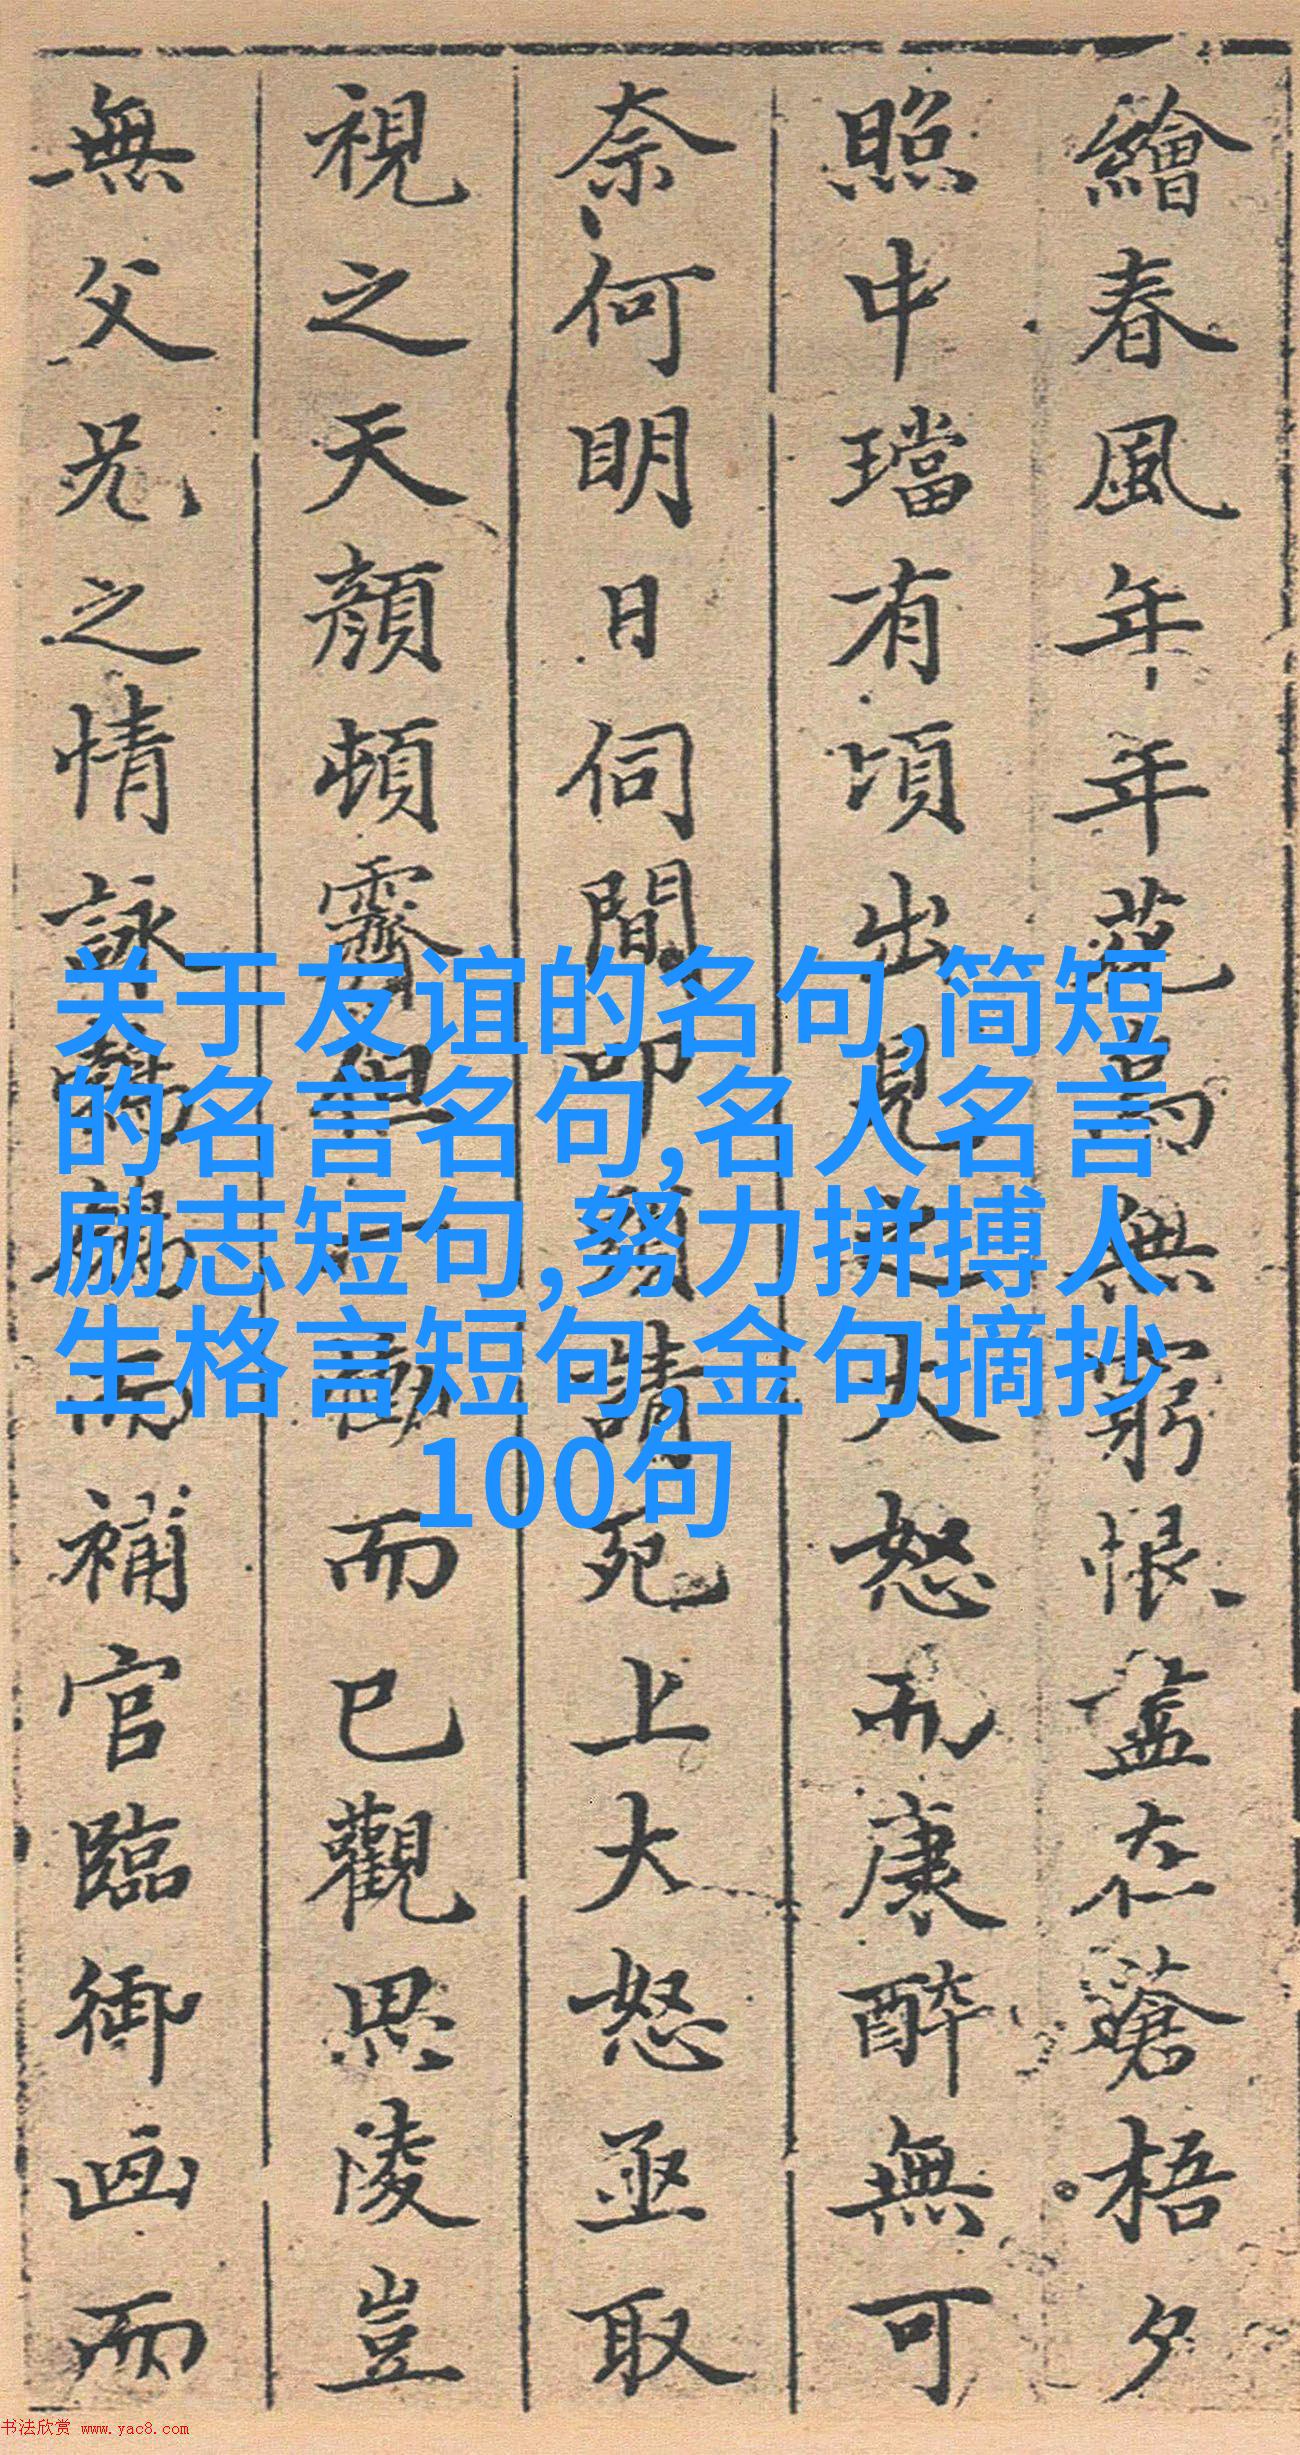 繪春風年年花萬無窮恨盡在蒼梧夕
照中璫有頃出見之大怒而康醉無可
奈何明日伺間叩頭請死上大怒亟取
視之天顏頓霽但一慟而已觀思陵豈
無父兄之情詠鶺鴒而補官臨御画而
关于友谊的名句,简短
的名言名句,名人名言
励志短句,努力拼搏人
生格言短句,金句摘抄
100句
书法欣赏 www.yac8.com